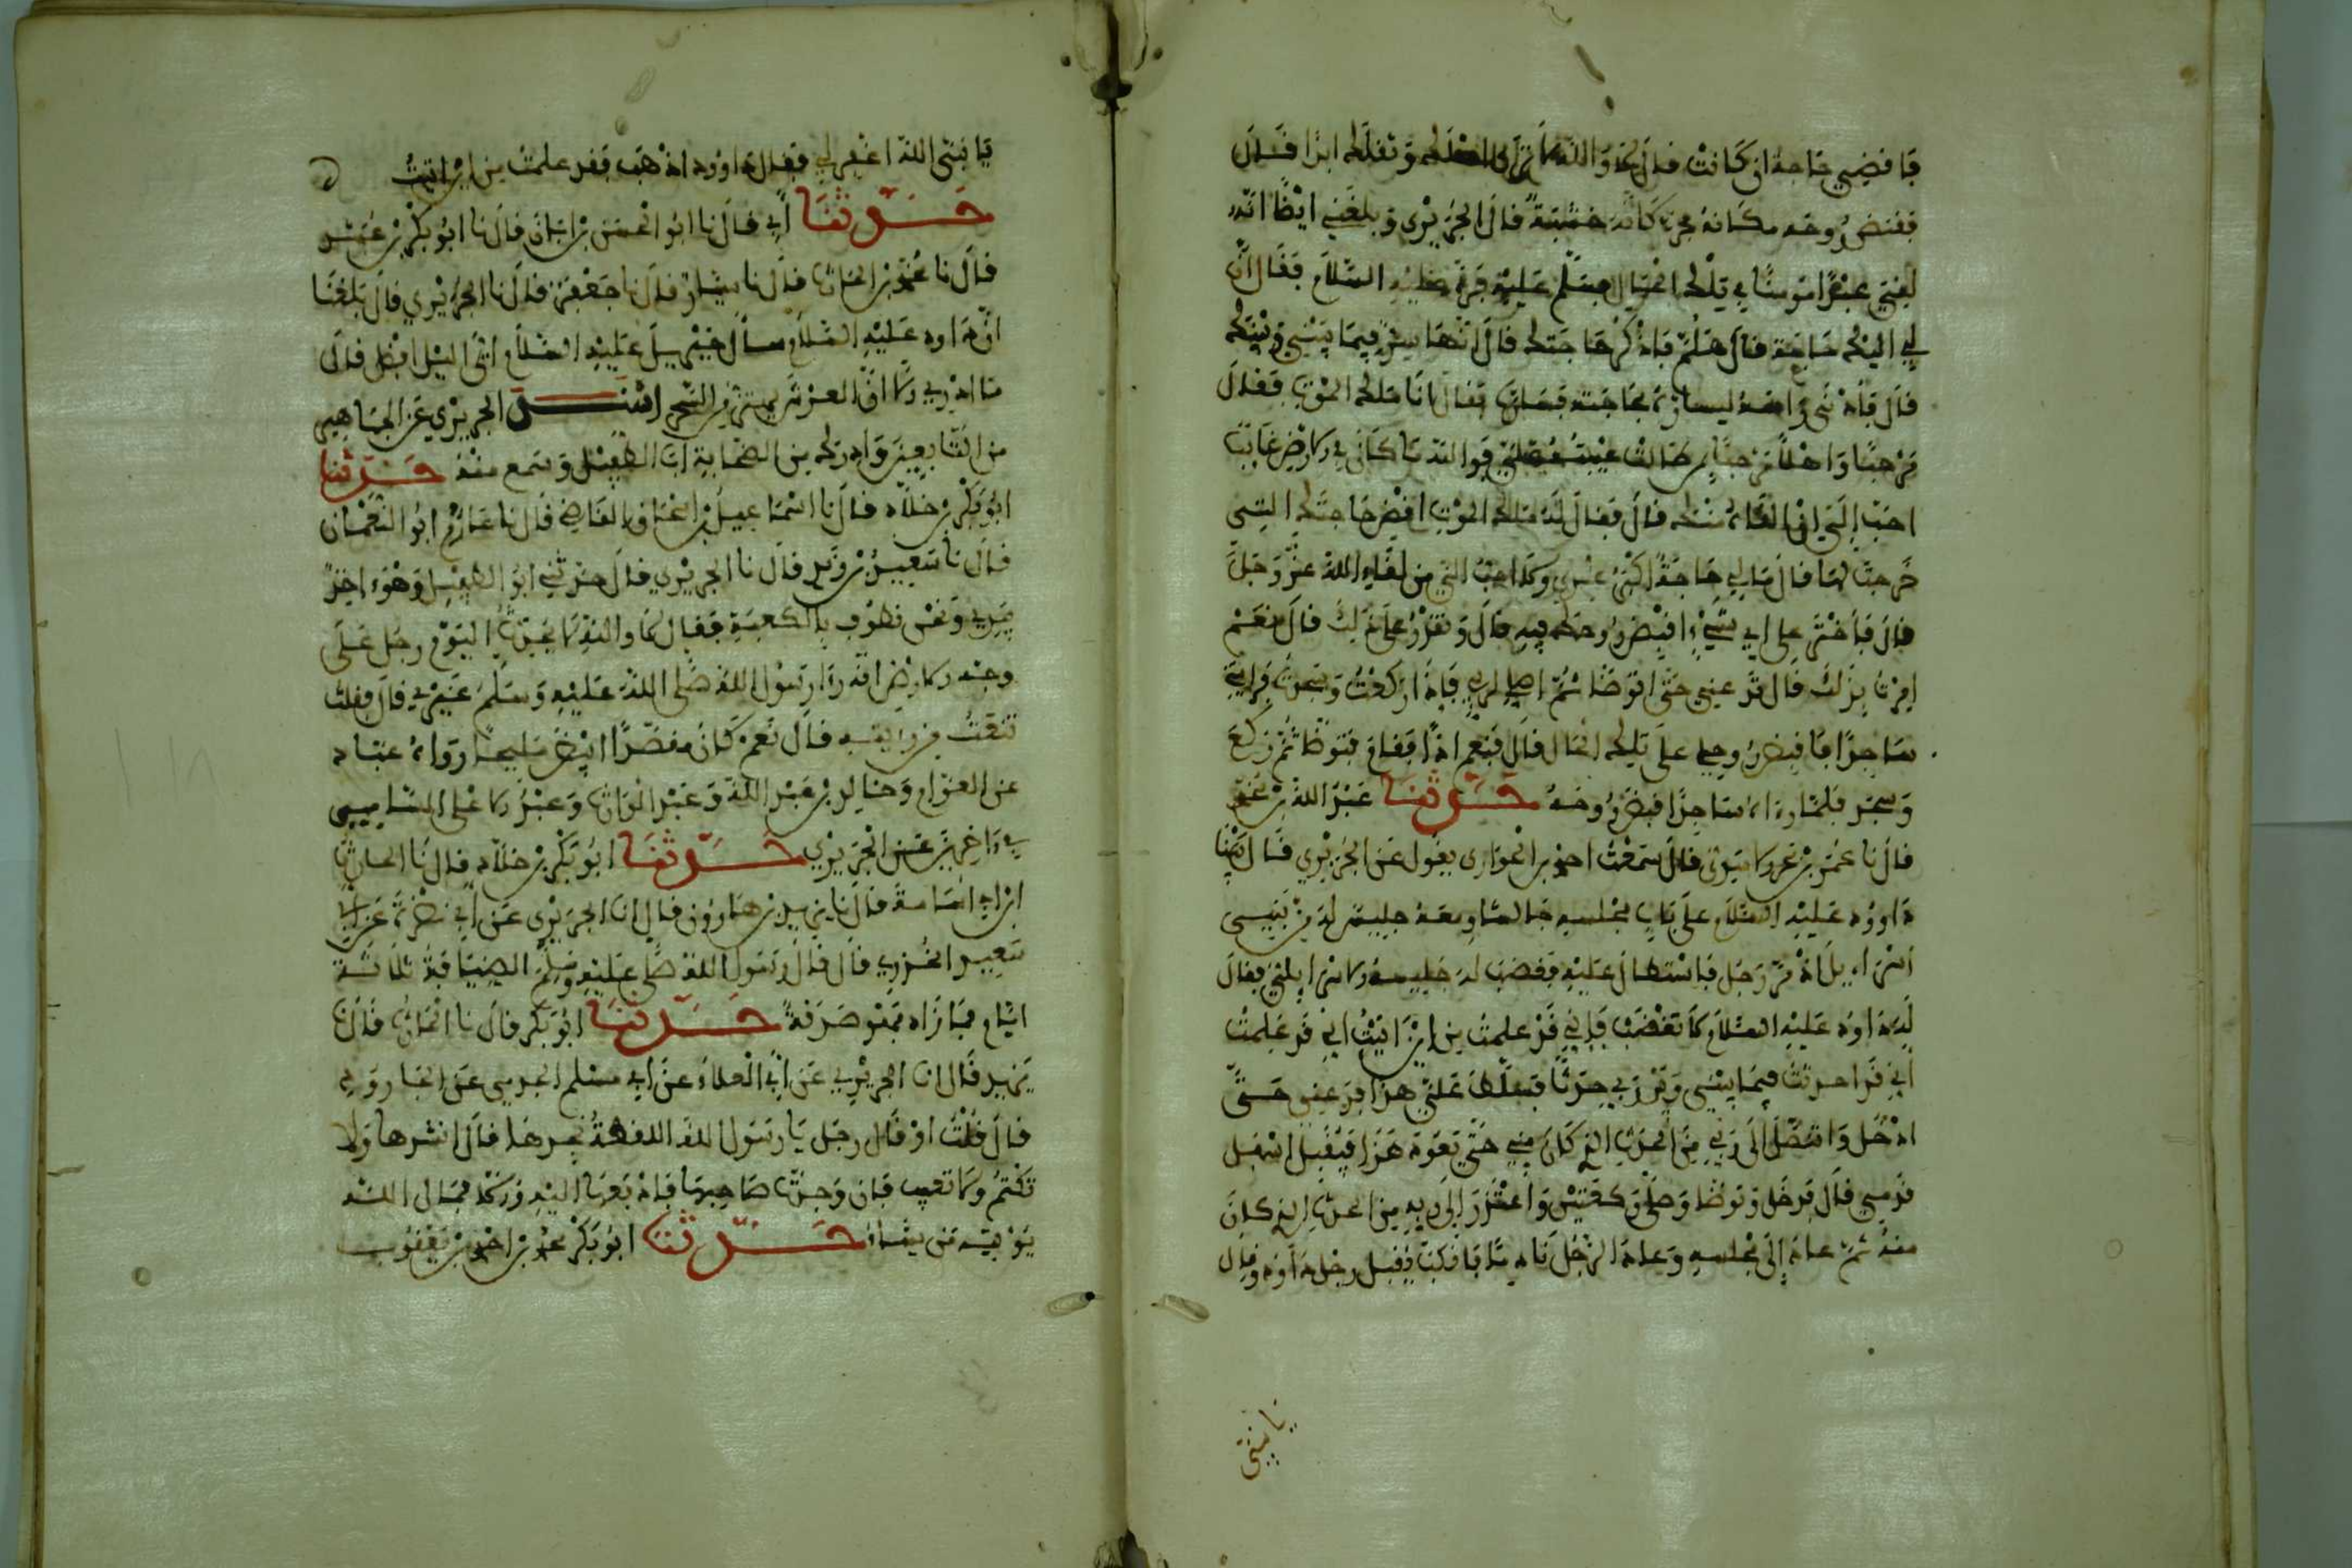 فأقضي حاجة إن كانت قال لا والله لا ترى أهلك وثقلك أبدا قال
فقبض روحه مكانه فخر كأنه خشبة قال الجريري وبلغني أيضا أنه
لقي عبدا مؤمنا في تلك الحال فسلم عليه فرد عليه السلام فقال إن
لي إليك حاجة قال هلم فاذكر حاجتك قال إنها سر فيما بيني وبينك
قال فأدنى رأسه ليساره بحاجته فساره فقال أنا ملك الموت فقال
مرحبا وأهلا مرحبا بمن طالت غيبته علي فوالله ما كان في الأرض غائب
أحب إلي أن ألقاه منك قال فقال له ملك الموت اقض حاجتك التي
خرجت لها قال ما لي حاجة أكبر عندي ولا أحب إلي من لقاء الله عز وجل
قال فاختر على أي شيء أقبض روحك فيه قال وتقدر على ذلك قال نعم
أمرت بذلك قال فدعني حتى أتوضأ ثم أصلي فإذا ركعت وسجدت فرأيتني
ساجدا فاقبض روحي على تلك الحال قال فنعم إذا فقام فتوضأ ثم ركع
وسجد فلما رآه ساجدا قبض روحه حدثنا عبد الله بن محمد
قال نا عمر بن بحر الأسدي قال سمعت أحمد بن الحواري يقول عن الجريري قال بينا
داوود عليه السلام على باب مجلسه جالسا ومعه جليس له من بني
إسرائيل إذ مر رجل فاستطال عليه فغضب له جليسه الإسرائيلي فقال
له داود عليه السلام لا تغضب فإني قد علمت من أين أتيت إني قد علمت
أني قد أحدثت فيما بيني وبين ربي حدثا فسلط علي هذا فدعني حتى
أدخل وأتنصل إلى ربي من الحدث الذي كان مني حتى يعود هذا فيقبل أسفل
قدمي قال فدخل وتوضأ وصلى ركعتين واعتذر إلى ربه من الحدث الذي كان
منه ثم عاد إلى مجلسه وعاد الرجل نادما فأكب يقبل رجل داود وقال
يا نبي
يا نبي الله اغفر لي فقال داوود اذهب فقد علمت من أين أتيت
حدثنا أبي قال نا أبو الحسن بن أبان قال نا أبو بكر بن عبيد
قال نا محمد بن الحارث قال نا سيار قال نا جعفر قال نا الجريري قال بلغنا
أن داود عليه السلام سأل جبريل عليه السلام أي الليل أفضل قال
ما أدري إلا أن العرش يهتز من السحر أسند الجريري عن الجماهير
من التابعين وأدرك من الصحابة أبا الطفيل وسمع منه حدثنا
أبو بكر بن خلاد قال نا إسماعيل بن إسحاق القاضي قال نا عارم أبو النعمان
قال نا سعيد بن زيد قال نا الجريري قال حدثني أبو الطفيل وهو آخذ
بيدي ونحن نطوف بالكعبة فقال لا والله لا يحدثك اليوم رجل على
وجه الأرض أنه رأى رسول الله صلى الله عليه وسلم غيري قال قلت
تنعت من رأيته قال نعم كان مقصدا أبيض مليحا رواه عباد
عن العوام وخالد بن عبد الله وعبد الوارث وعبد الأعلى السامي
في آخرين عن الجريري حدثنا أبو بكر بن خلاد قال نا الحارث
ابن أبي أسامة قال نا يزيد بن هارون قال أنا الجريري عن أبي نضرة عن أبي
سعيد الخدري قال قال رسول الله صلى عليه وسلم الضيافة ثلاثة
أيام فما زاد فهو صدقة حدثنا أبو بكر قال نا الحارث قال نا
يزيد قال أنا الجريري عن أبي العلاء عن أبي مسلم الجرمي عن الجارود
قال قلت أو قال رجل يا رسول الله اللقطة نجدها قال انشدها ولا
تكتم ولا تغيب فإن وجدت صاحبها فادفعها إليه وإلا فمال الله
يؤتيه من يشاء حدثنا أبو بكر محمد بن أحمد بن يعقوب